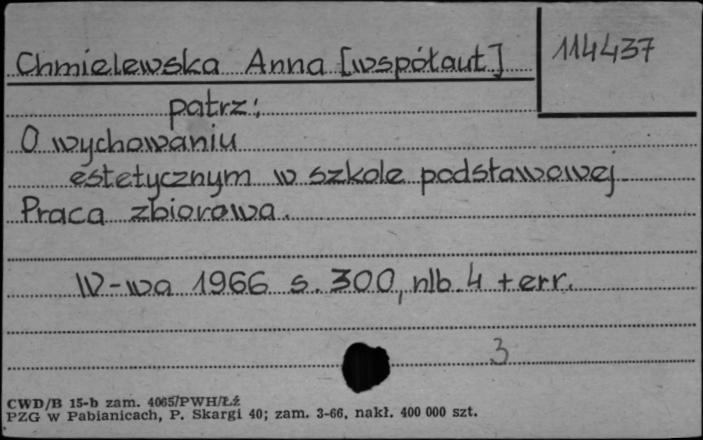 Chmielewska Anna [współaut] 114437
patrz:
O wychowaniu
estetycznym w szkole podstawowej
Praca zbiorowa.
W-wa 1966 s. 300, nlb. 4 + err.
3
CWD/B 15-b zam. 4065/PWH/Łź
PZG w Pabianicach, P. Skargi 40; zam. 3-66, nakł. 400 000 szt.